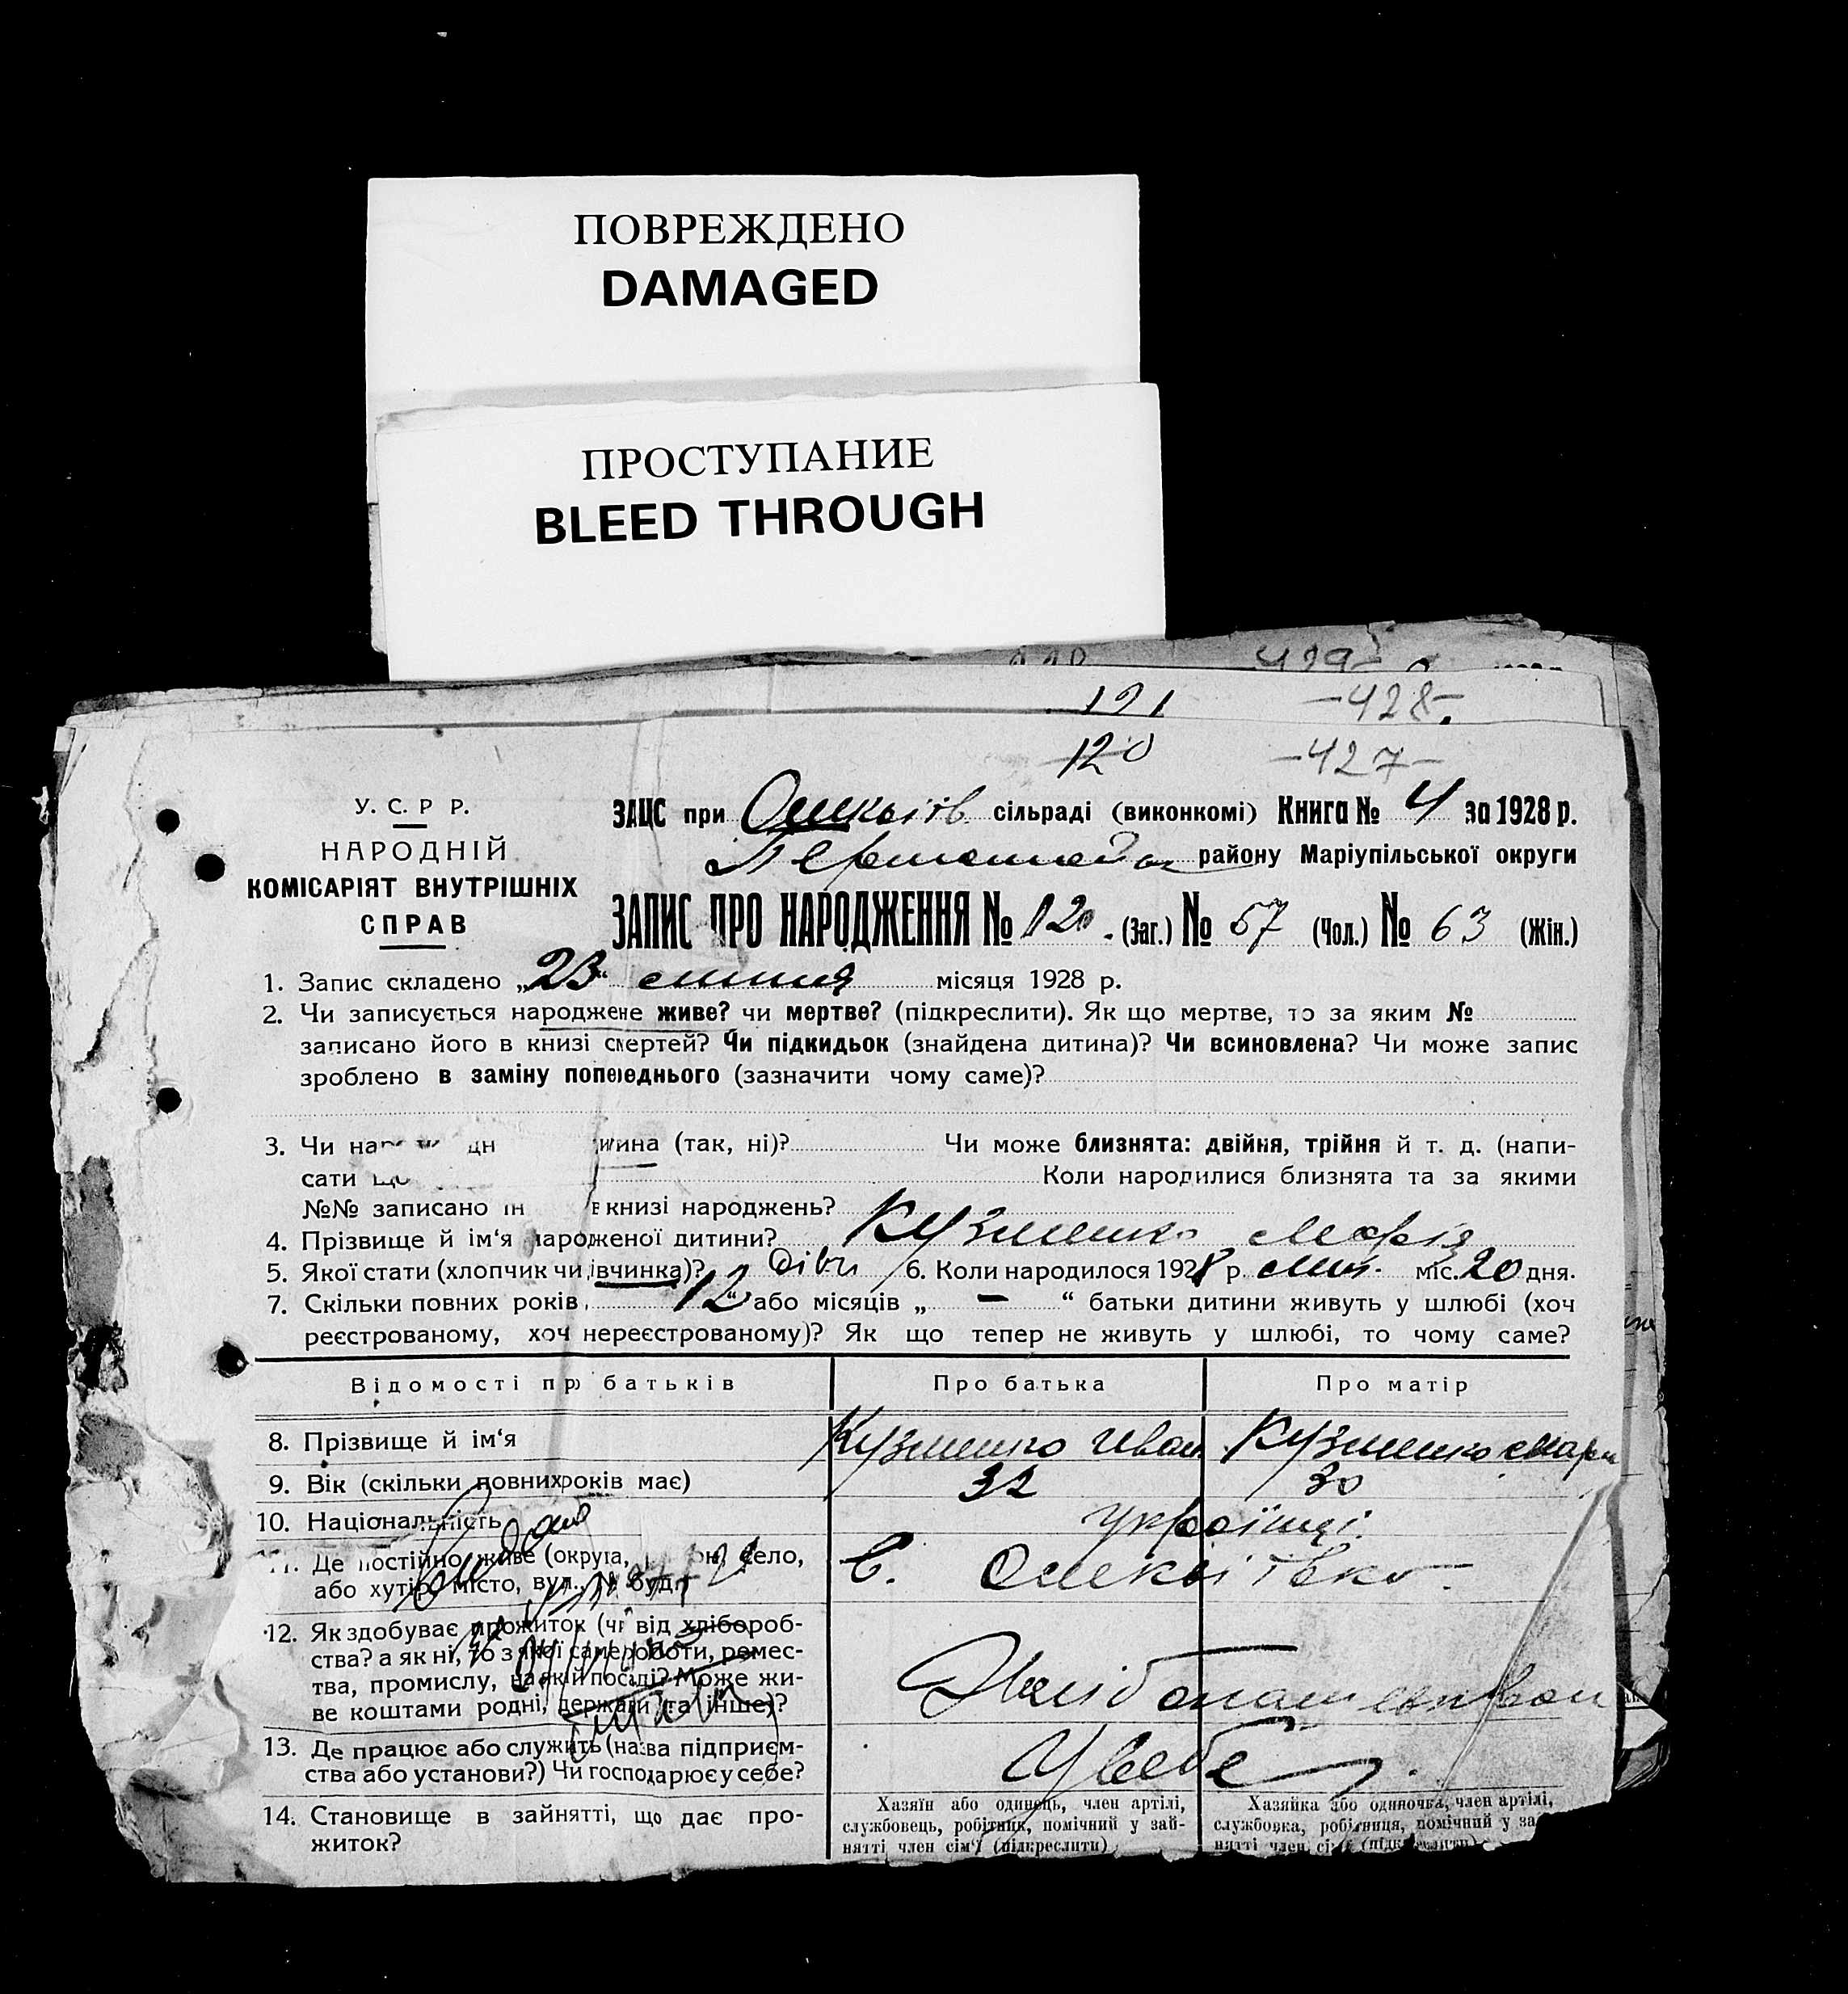 ПОВРЕЖДЕНО
DAMAGED
ПРОСТУПАНИЕ
BLEED THROUGH
429-
121 -428-
120 -427-
У. С. Р Р.
НАРОДНІЙ
КОМІСАРІЯТ ВНУТРІШНІХ
СПРАВ
ЗАЦС при сільраді (виконкомі) Книга № 4 за 1928 р.
району Маріупільської округи
ЗАПИС ПРО НАРОДЖЕННЯ № 120. (Заг.) № 57 (Чол.) № 63 (Жін.)
1. Запис складено „23“ липня місяця 1928 р.
2. Чи записується народжене живе? чи мертве? (підкреслити). Як що мертве, то за яким №
записано його в книзі смертей? Чи підкидьок (знайдена дитина)? Чи всиновлена? Чи може запис
зроблено в заміну попереднього (зазначити чому саме)?
3. Чи (так, ні)? Чи може близнята: двійня, трійня й т. д. (напи-
сати Коли народилися близнята та за якими
№№ записано в книзі народжень?
4. Прізвище й ім‘я народженої дитини? Кузменко Марія
5. Якої стати (хлопчик чи дівчинка)? дівч 6. Коли народилося 1928 р. лип. міс. 20 дня.
7. Скільки повних років „ 12 “ або місяців „ — “ батьки дитини живуть у шлюбі (хоч
реєстрованому, хоч нереєстрованому)? Як що тепер не живуть у шлюбі, то чому саме?
Відомості про батьків Про батька Про матір
8. Прізвище й ім‘я Кузменко Иван Кузменко Мари
9. Вік (скільки повних років має) 32 30
10. Національність українці.
11. Де постійно живе (округа, село,
або хутір, місто, вул., № буд.) с.
12. Як здобуває прожиток (чи від хлібороб-
ства? а як ні, то з якої саме роботи, ремес-
тва, промислу, на якій посаді? Може жи-
ве коштами родні, держави та інше)?
13. Де працює або служить (назва підприєм-
ства або установи?) Чи господарює у себе? У себе
14. Становище в зайнятті, що дає про-
житок?
Хазяїн або одинець, член артілі,
службовець, робітник, помічний у зай-
нятті член сім‘ї (підкреслити)
Хазяйка або одиночка, член артілі,
службовка, робітниця, помічний у за
нятті член сім‘ї (підкреслити)